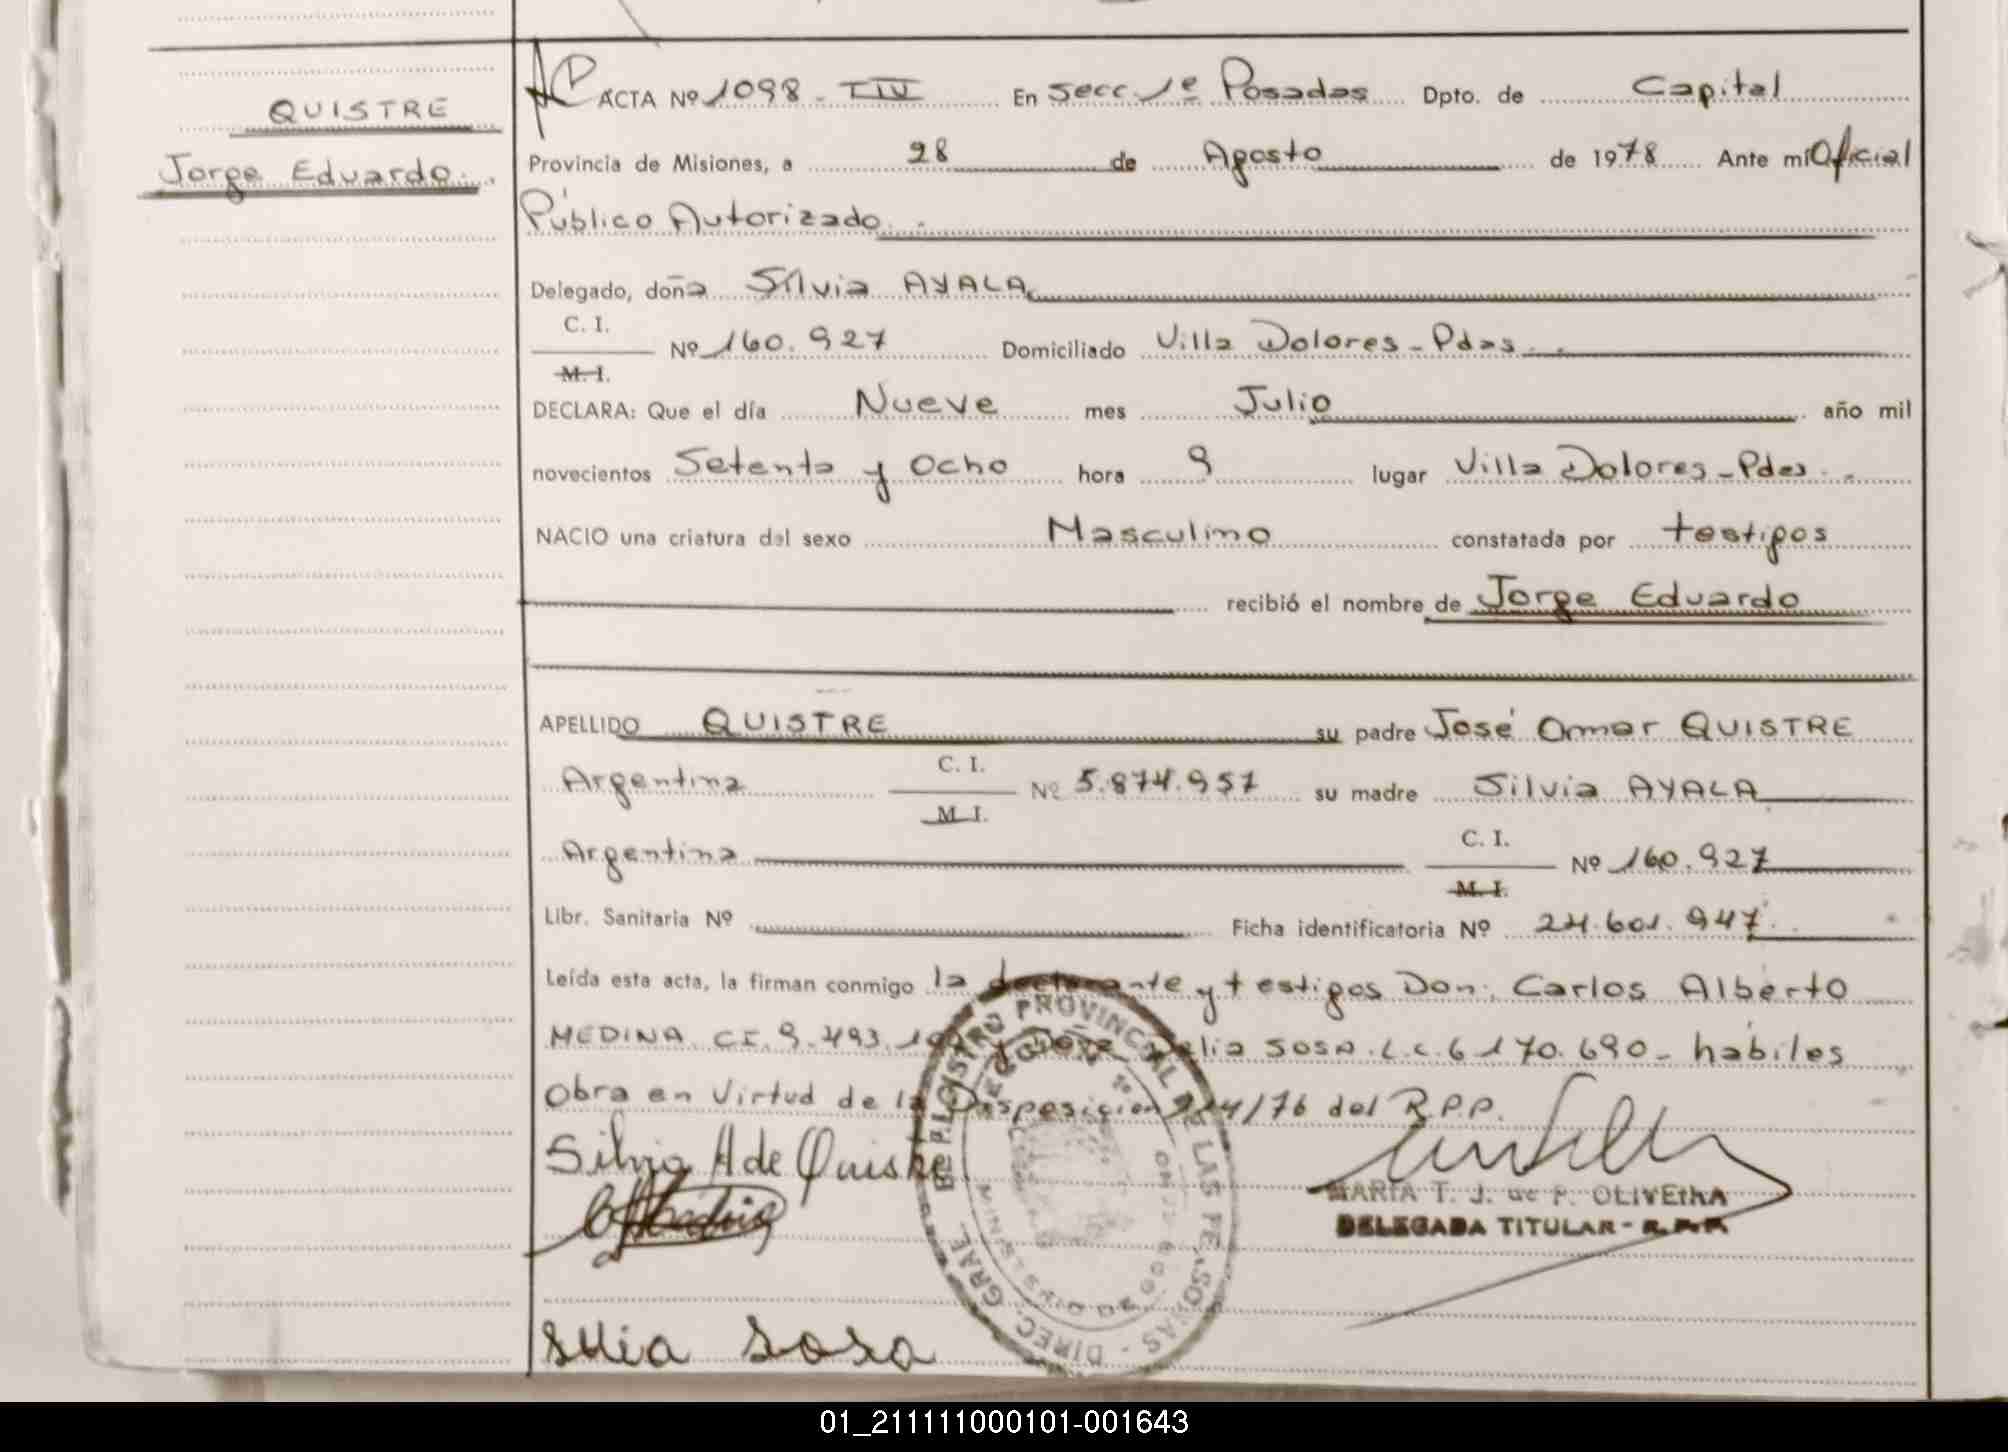 QUISTRE
Jorge Eduardo
ACTA Nº 1098 - TIV En Secc 1º Posadas Dpto. de Capital
Provincia de Misiones, a 28 de Agosto de 1978 Ante mi Oficial
Público Autorizado
Delegado, doña Silvia AYALA
C. I.
Nº 160.927 Domiciliado Villa Dolores - Pdas
M. I.
DECLARA: Que el día Nueve mes Julio año mil
novecientos Setenta y Ocho hora 9 lugar Villa Dolores - Pdas
NACIO una criatura del sexo Masculino constatada por testigos
recibió el nombre de Jorge Eduardo
APELLIDO QUISTRE su padre José Omar QUISTRE
Argentina C. I. Nº 5.874.957 su madre Silvia AYALA
M. I.
Argentina C. I. Nº 160.927
M. I.
Libr. Sanitaria Nº Ficha identificatoria Nº 24.601.947
Leída esta acta, la firman conmigo la declarante y testigos Don: Carlos Alberto
MEDINA CI. 9.493. y Doña SOSA. L.C. 6170.690 - habiles
Obra en Virtud de la Disposicion /76 del R.P.P.
Silvia A de Quistre
MARIA T. J. de P. OLIVEIRA
DELEGADA TITULAR - R.P.P.
Sosa
REGISTRO PROVINCIAL DE LAS PERSONAS - DIREC. GRAL.
MINISTERIO DE GOBIERNO
01_211111000101-001643